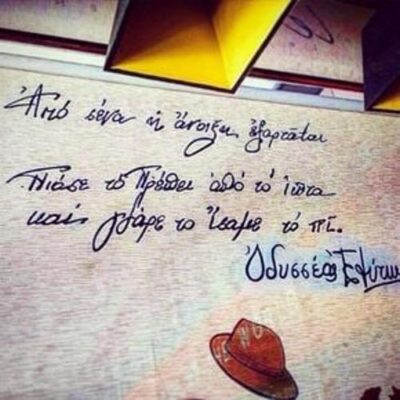 Ἀπό σένα ἡ ἄνοιξη ἐξαρτᾶται
Πιάσε τό Πρέπει ἀπό τό ἰῶτα
καί γδάρε το ἴσαμε τό πῖ.
Ὀδυσσέας Ἐλύτη